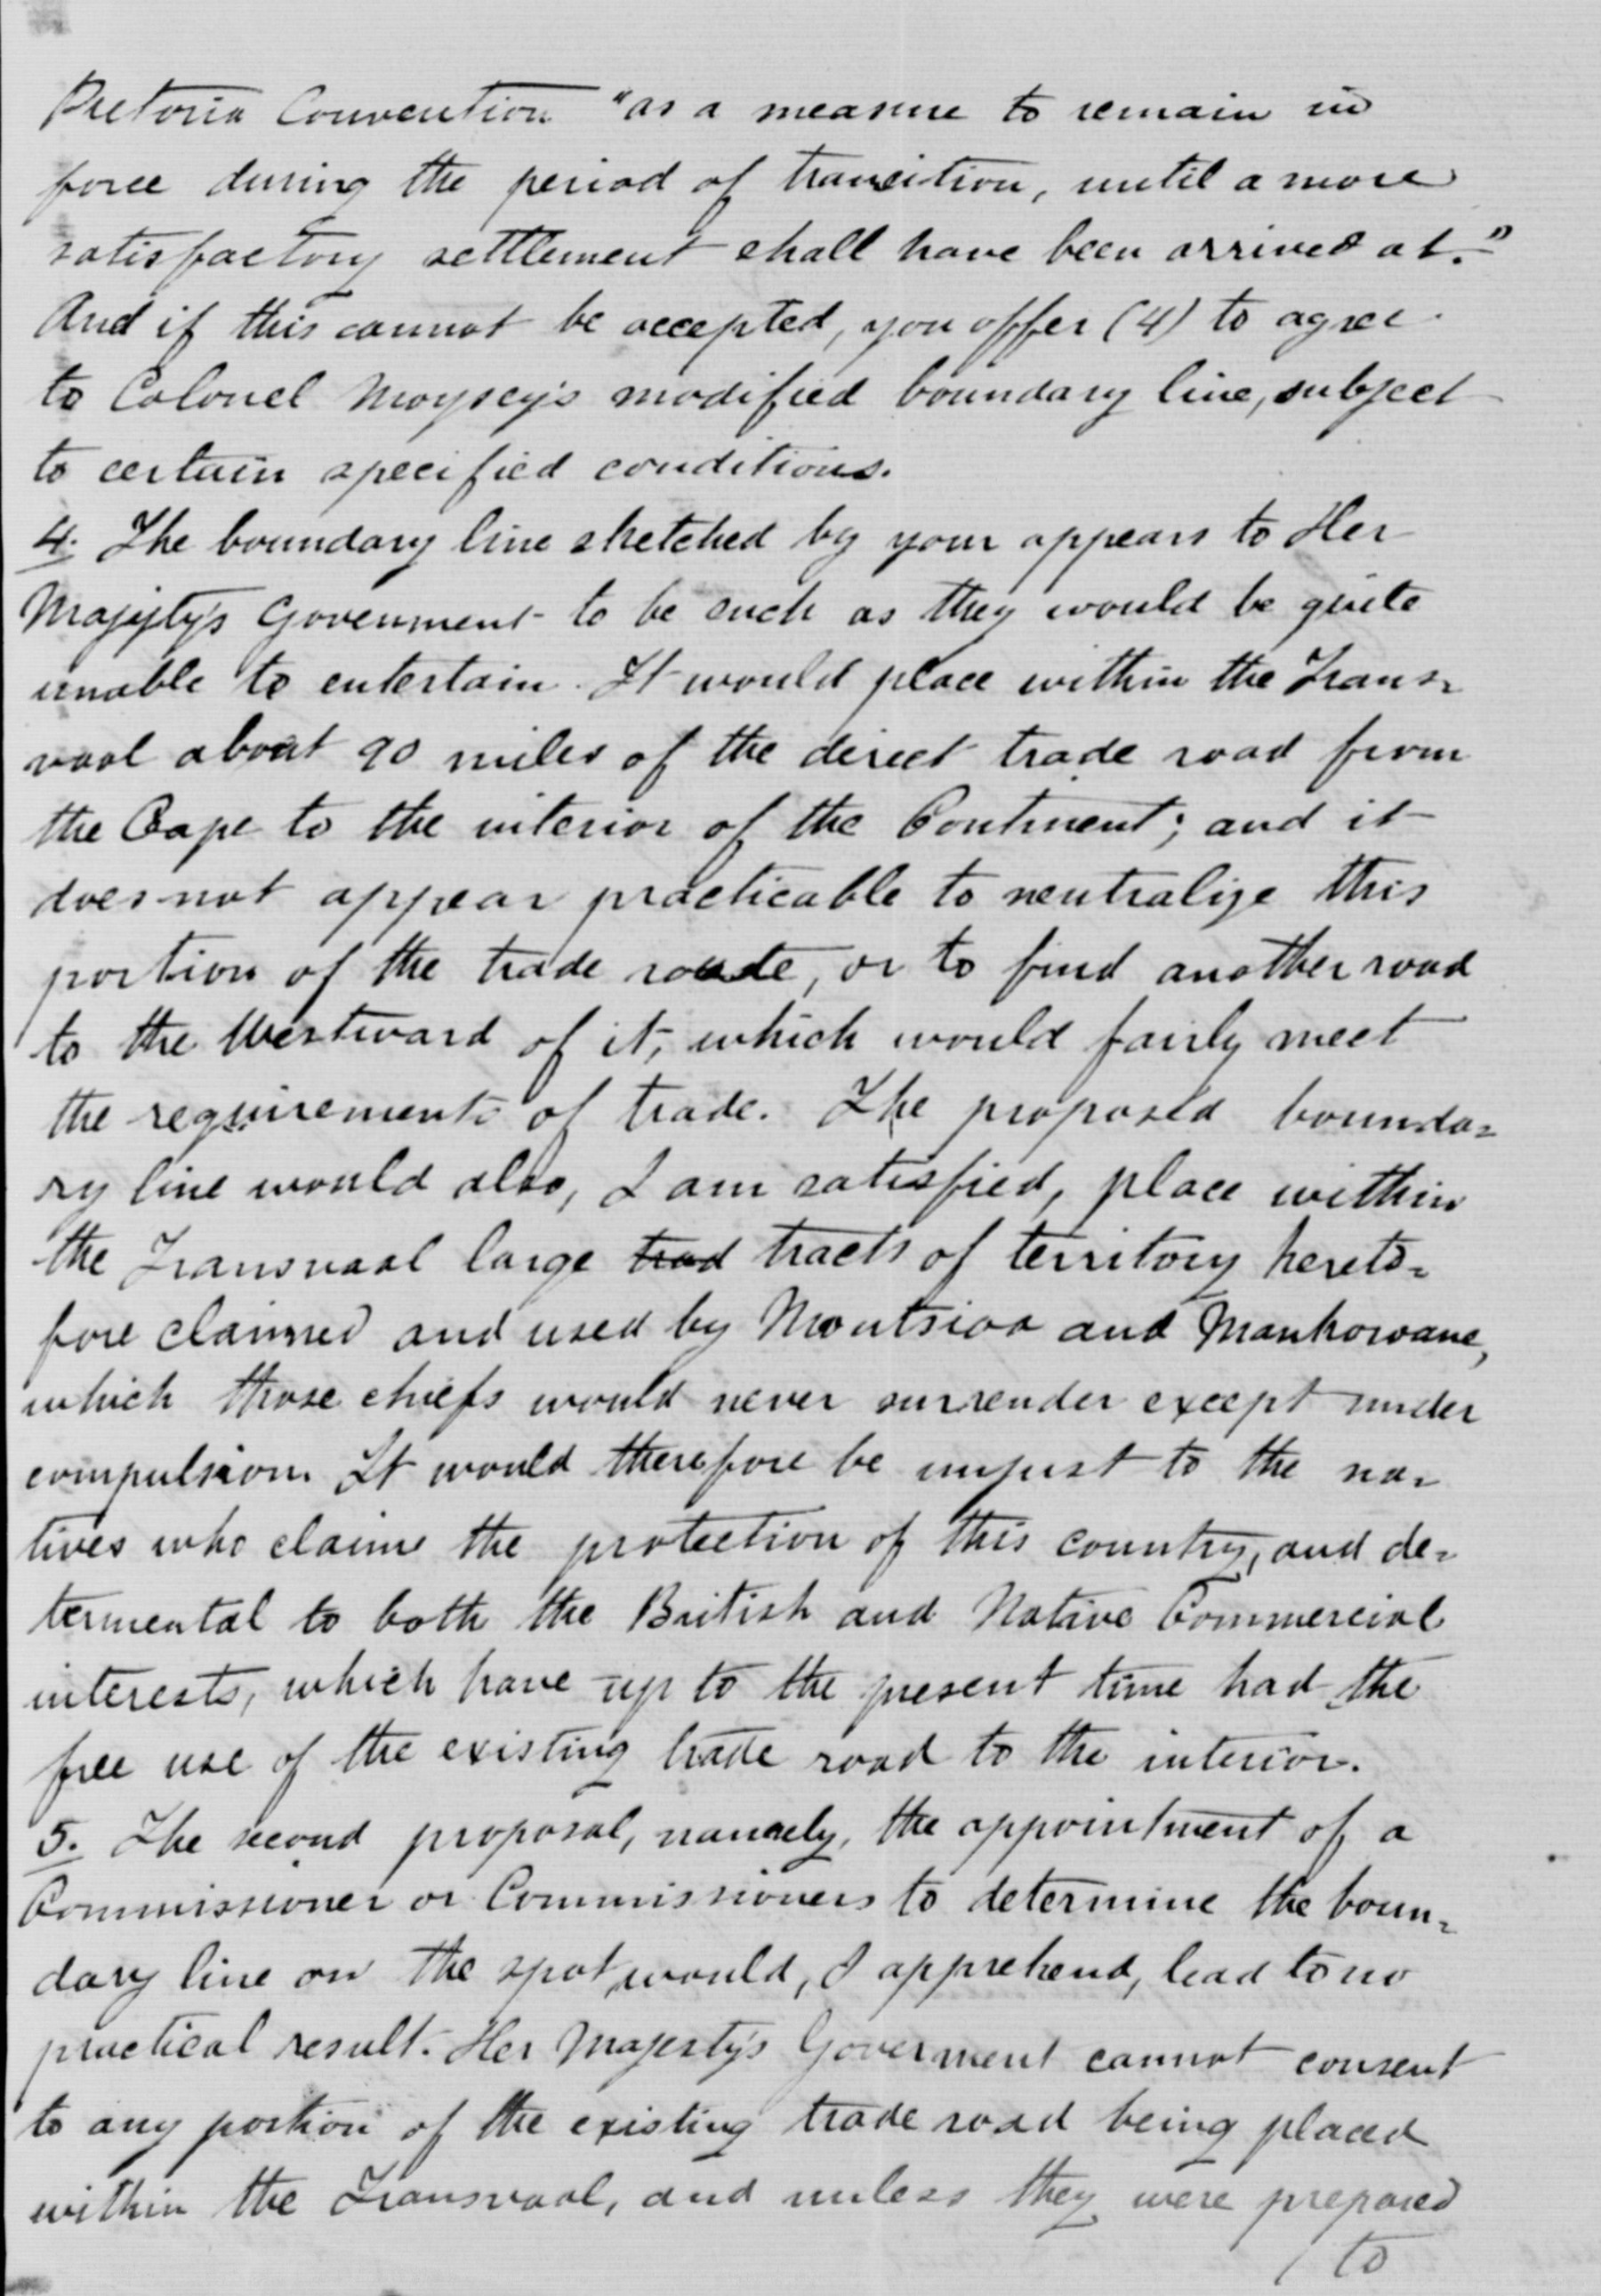 Pretoria Convention "as a measure to remain in
force during the period of transition, until a more
satisfactory settlement shall have been arrived at."
And if this cannot be accepted, you offer (4) to agree
to Colonel Moysey's modified boundary line, subject
to certain specified conditions.
4. The boundary line sketched by your appears to Her
Majesty's Govenment to be such as they would be quite
unable to entertain. It would place within the Trans=
vaal about 90 miles of the direct trade road from
the Cape to the interior of the Continent; and it
does not appear practicable to neutralize this
portion of the trade route, or to find another road
to the Westward of it, which would fairly meet
the requirements of trade. The proposed bounda=
ry line would also, I am satisfied, place within
the Transvaal large trad tracts of territory hereto=
fore claimed and used by Montsioa and Mankorwane,
which those chiefs would never surrender except under
compulsion. It would therefore be unjust to the na=
tives who claim the protection of this country, and de=
termental to both the British and Native Commercial
interests, which have up to the present time had the
free use of the existing trade road to the interior.
5. The second proposal, namely, the appointment of a
Commissioner or Commissioners to determine the boun=
dary line on the spot, would, I apprehend, lead to no
practical result. Her Majesty's Goverment cannot consent
to any portion of the existing trade road being placed
within the Transvaal, and unless they were prepared
/ to